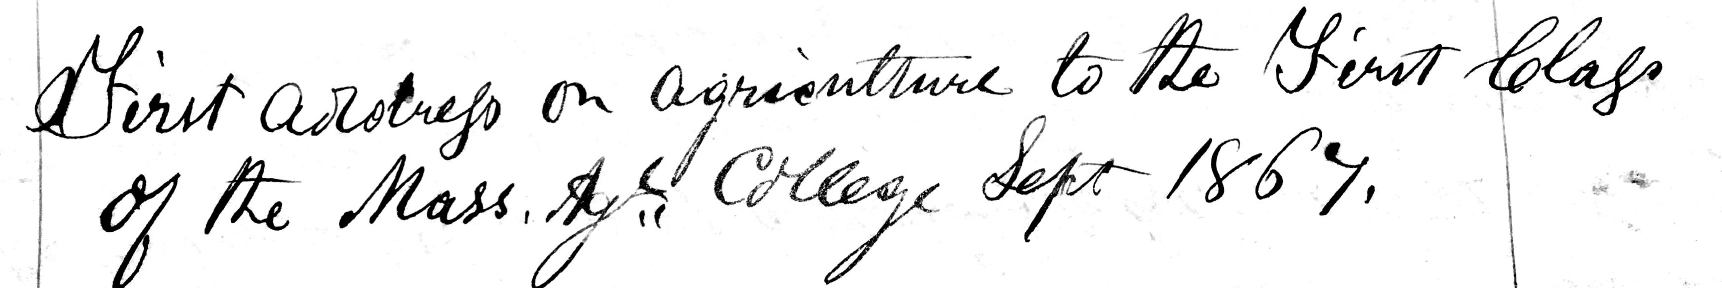 First address on agriculture to the First Class
of the Mass. Agl. College Sept 1867.